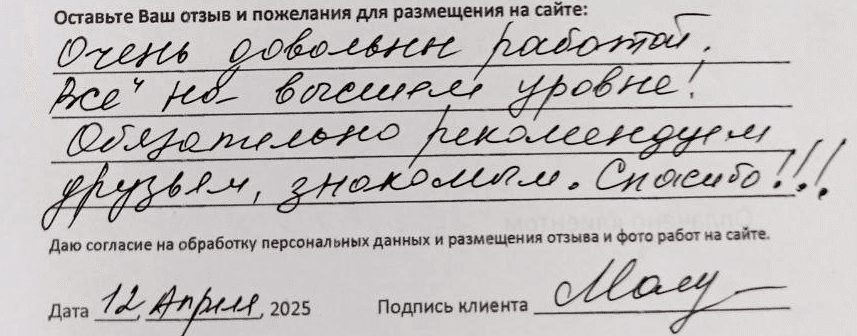 Оставьте Ваш отзыв и пожелания для размещения на сайте:
Очень довольны работой.
Все на высшем уровне!
Обязательно рекомендуем
друзьям, знакомым. Спасибо!!!
Даю согласие на обработку персональных данных и размещения отзыва и фото работ на сайте.
Дата 12 Апреля, 2025 Подпись клиента